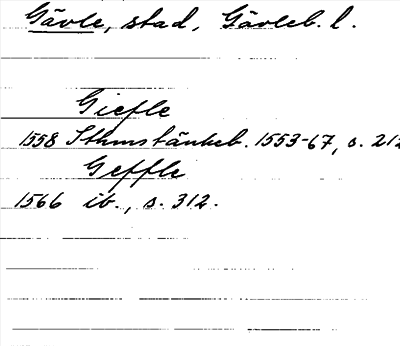 Gävle, stad, Gävleb. l.
Giefle
1558 Sthmstänkeb. 1553-67, s. 212
Geffle
1566 ib., s. 312.